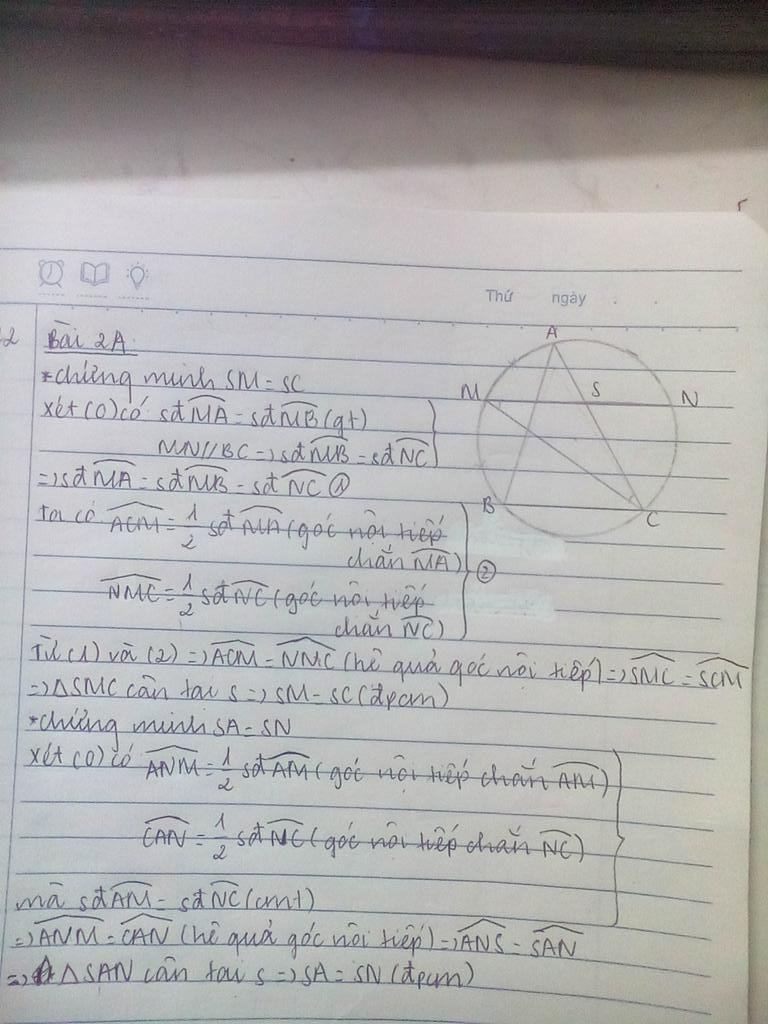 Thứ ngày
2 Bài 2A.
*chứng minh SM = SC
Xét (O) có sđMA = sđMB (gt)
MN // BC => sđMB = sđNC
=> sđMA = sđMB = sđNC ①
Ta có ACM = 1/2 sđMA (góc nội tiếp
chắn MA)
②
NMC = 1/2 sđNC (góc nội tiếp
chắn NC)
Từ (1) và (2) => ACM = NMC (hệ quả góc nội tiếp) => SMC = SCM
=> △SMC cân tại S => SM = SC (đpcm)
*chứng minh SA = SN
Xét (O) có ANM = 1/2 sđAM (góc nội tiếp chắn AM)
CAN = 1/2 sđNC (góc nội tiếp chắn NC)
mà sđAM = sđNC (cmt)
=> ANM = CAN (hệ quả góc nội tiếp) => ANS = SAN
=> △SAN cân tại S => SA = SN (đpcm)
A
M S N
B
C